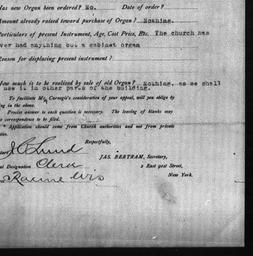 as new Organ been ordered? No. Date of order?
mount already raised toward purchase of Organ? Nothing.
articulars of present Instrument, Age, Cost Price, Etc. The church has
ver had anything but a cabinet organ
eason for displacing present instrument?
ow much is to be realized by sale of old Organ? Nothing, as we shall
use it in other parts of the building.
To facilitate Mr. Carnegie's consideration of your appeal, will you oblige by
ing in the above.
Precise answer to each question is necessary. The leaving of blanks may
correspondence to be filed.
* Application should come from Church authorities and not from private
Respectfully,
JAS. BERTRAM, Secretary,
2 East 91st Street,
New York.
Lund
Clerk
al Designation
Racine Wis